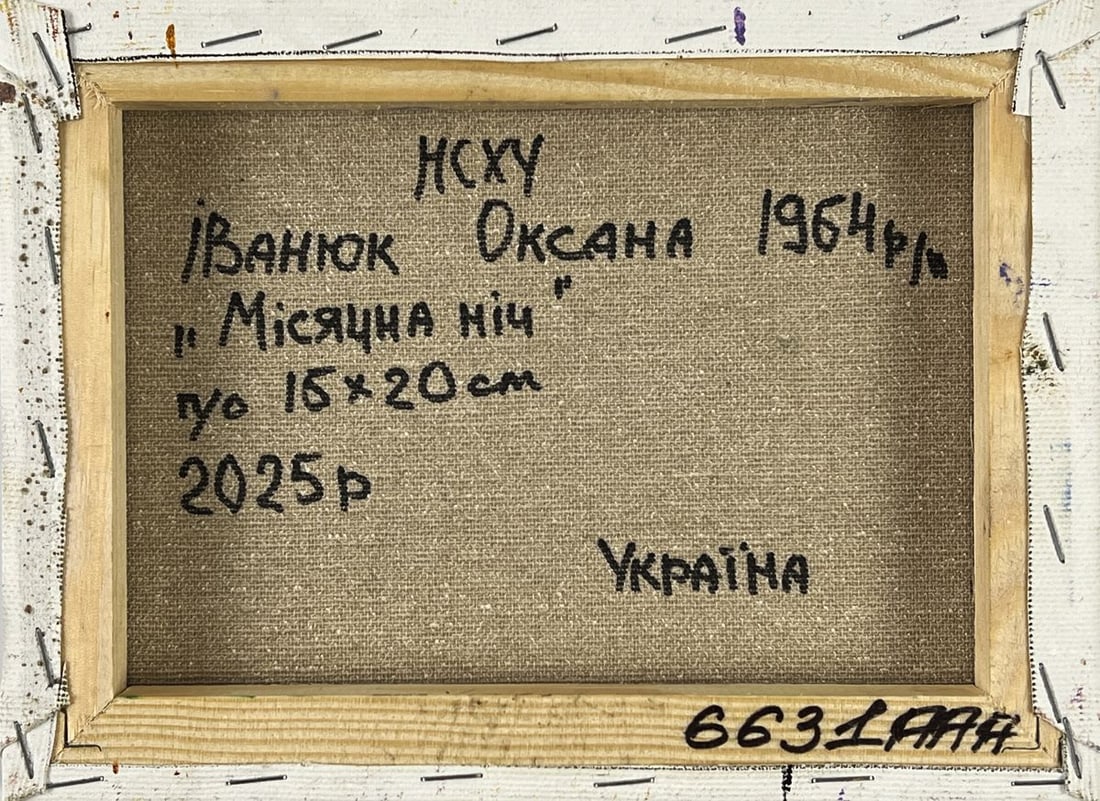 НСХУ
Іванюк Оксана 1964 р/н
„Місячна ніч"
п/о 15х20 см
2025 р
Україна
6631ААА